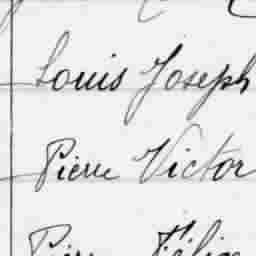 Louis Joseph
Pierre Victor
Pierre Félix